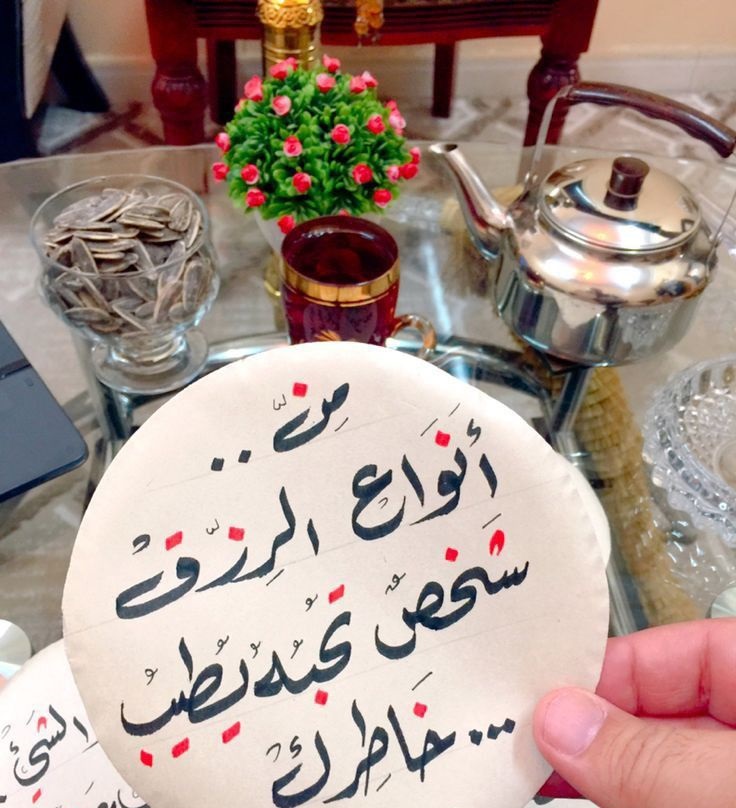 مِنّ ..
أَنوَاع الرِزّق
شَخصٌ تحُبُهُ يُطيبُ
خَاطِرك ...
الشيُ